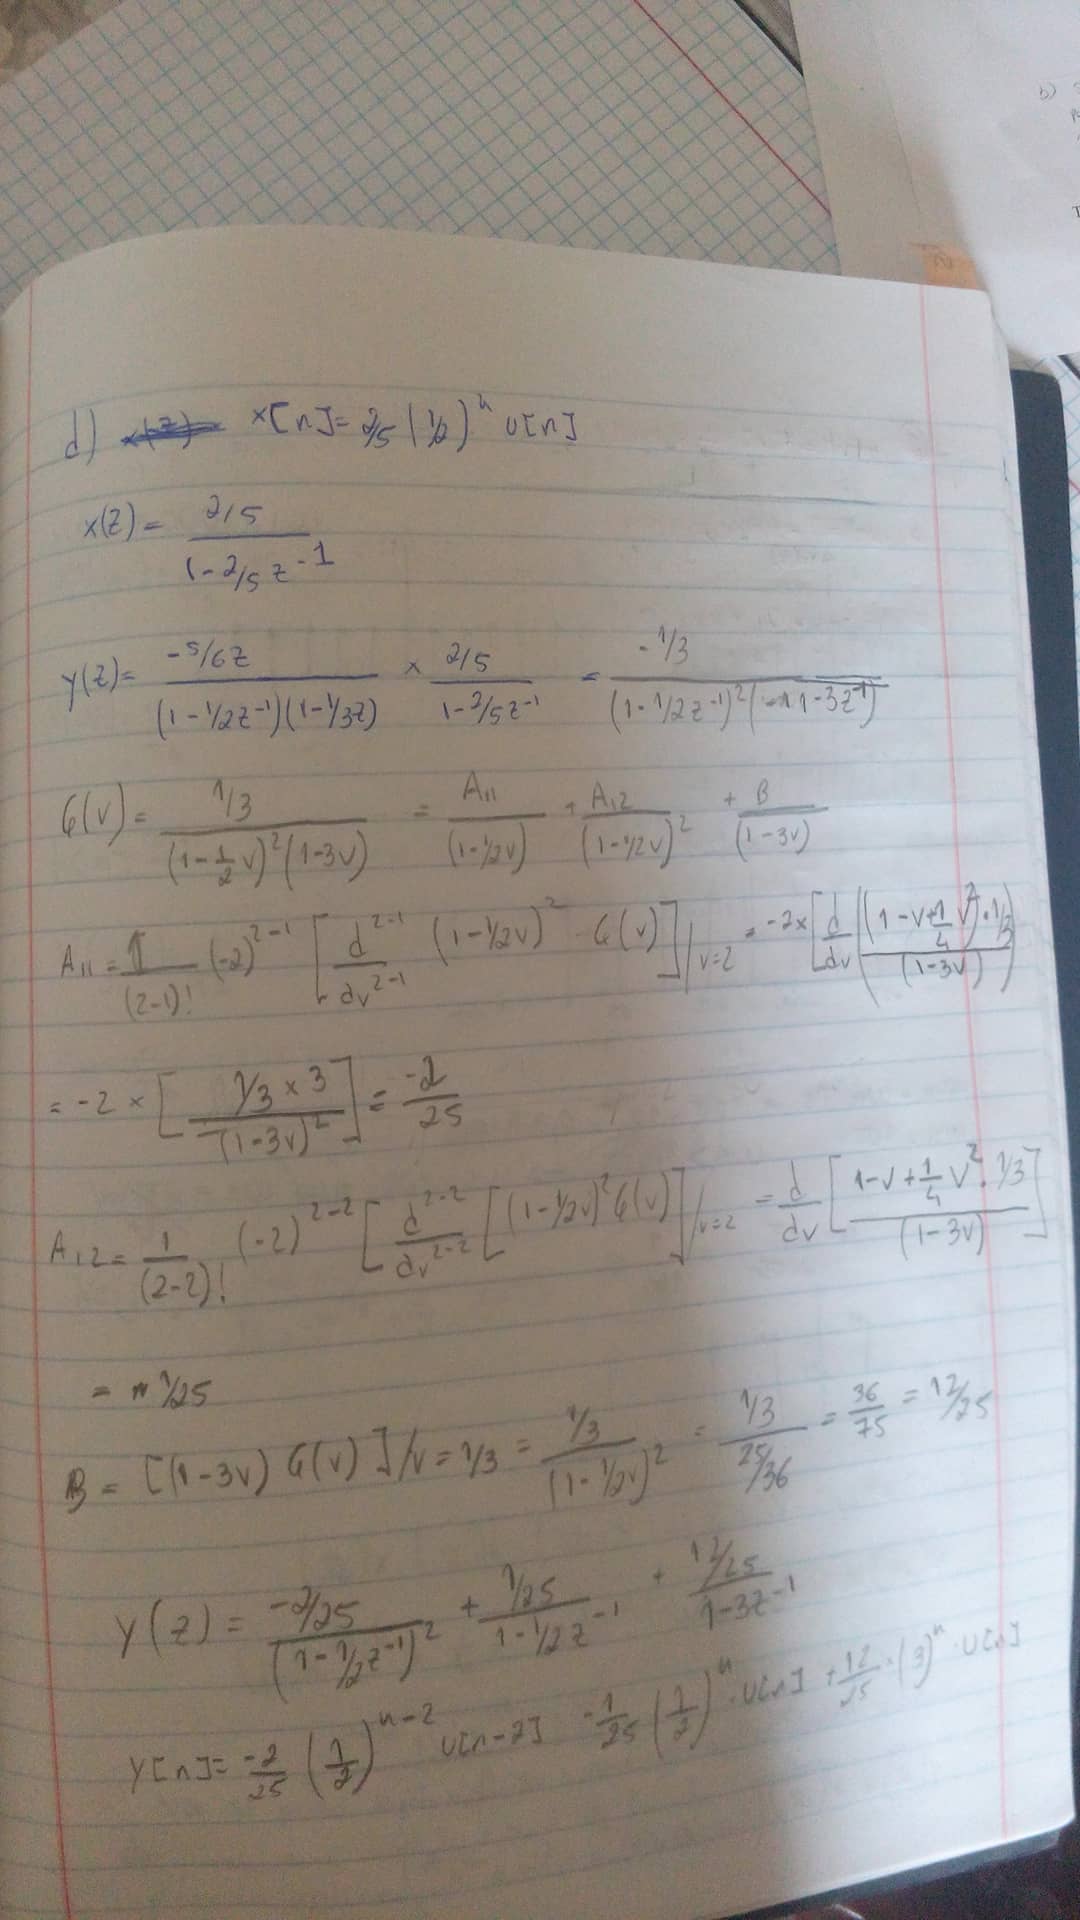 b)
d) x[n]= 2/5 (1/2)^n u[n]
x(z)= (2/5)/(1-2/5 z^-1)
y(z)= (-5/6 z)/((1-1/2z^-1)(1-1/3z)) × (2/5)/(1-2/5z^-1) = (-1/3)/((1-1/2z^-1)^2 (1-3z^-1))
G(v)= (1/3)/((1-1/2 v)^2 (1-3v)) = A11/(1-1/2v) + A12/(1-1/2v)^2 + B/(1-3v)
A11= 1/(2-1)! (-2)^2-1 [d^2-1/dv^2-1 (1-1/2v)^2 · G(v)]|v=2 = -2×[d/dv ((1-v+1/4 v^2)·1/3)/(1-3v)
= -2 × [(1/3 × 3)/(1-3v)^2] = -2/25
A12= 1/(2-2)! (-2)^2-2 [d^2-2/dv^2-2 [(1-1/2v)^2 G(v)]|v=2 = d/dv [(1-v+1/4 v^2 · 1/3)/(1-3v)]
= 1/25
B = [(1-3v) G(v)]/v=1/3 = (1/3)/(1-1/2v)^2 = (1/3)/(25/36) = 36/75 = 12/25
Y(z) = (-2/25)/(1-1/2z^-1)^2 + (1/25)/(1-1/2z^-1) + (12/25)/(1-3z^-1)
Y[n]= -2/25 (1/2)^n-2 u[n-2] -1/25 (1/2)^n · u[n] + 12/25 · (3)^n · u[n]